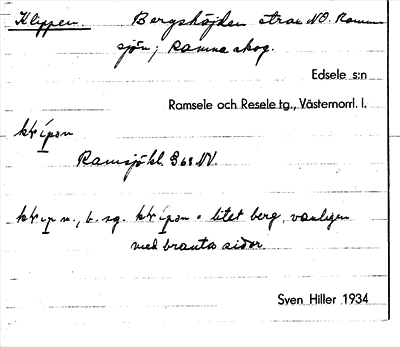 Klippen. Bergshöjden strax NO. Ramm
sjön; Ramne skog.
Edsele s:n
Ramsele och Resele tg., Västernorrl. l.
Ramsjö kl. B 68 NV.
n., b. sg. = litet berg, vanligen
med branta sidor.
Sven Hiller 1934